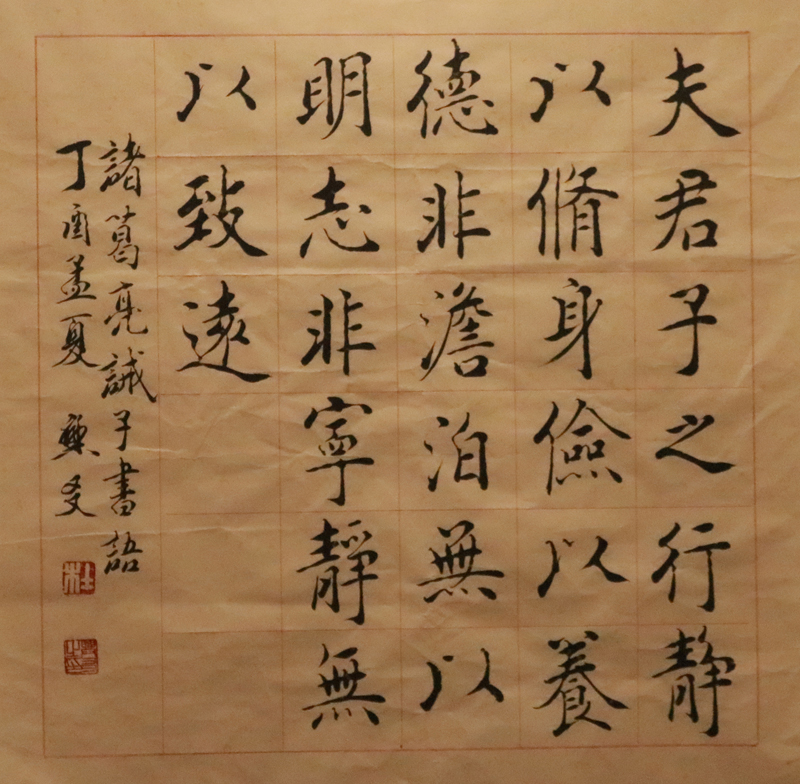 夫君子之行静
以脩身儉以養
德非澹泊無以
明志非寧靜無
以致遠
諸葛亮誡子書語
丁酉孟夏